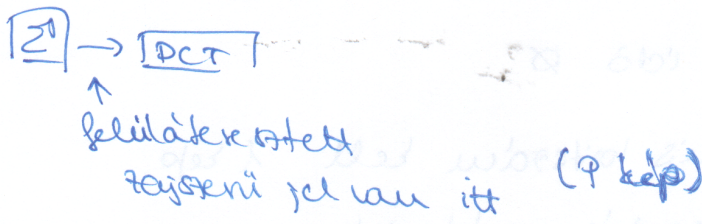 Σ → DCT
felüláteresztett
zajszerű jel van itt (P kép)